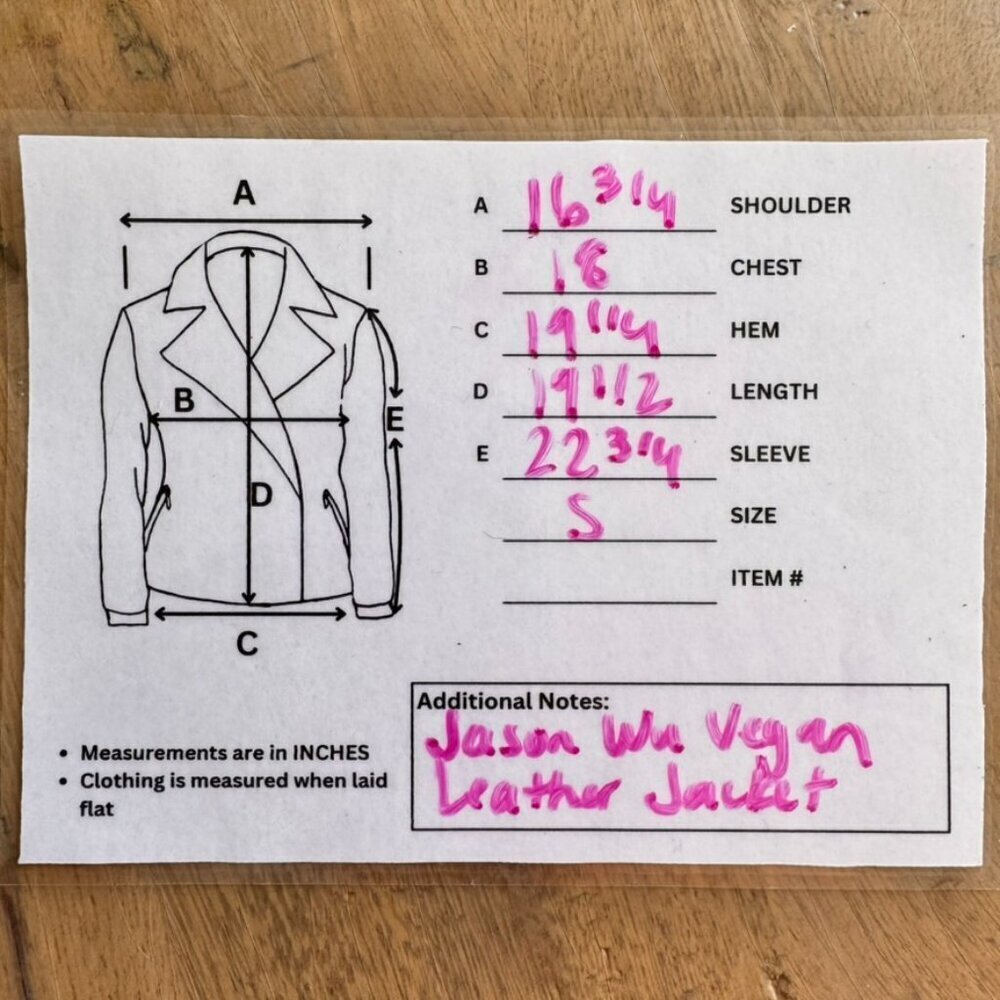 A
B
E
D
C
A 16 3/4 SHOULDER
B 18 CHEST
C 19 1/4 HEM
D 19 1/2 LENGTH
E 22 3/4 SLEEVE
S SIZE
ITEM #
• Measurements are in INCHES
• Clothing is measured when laid
flat
Additional Notes:
Jason Wu Vegan
Leather Jacket